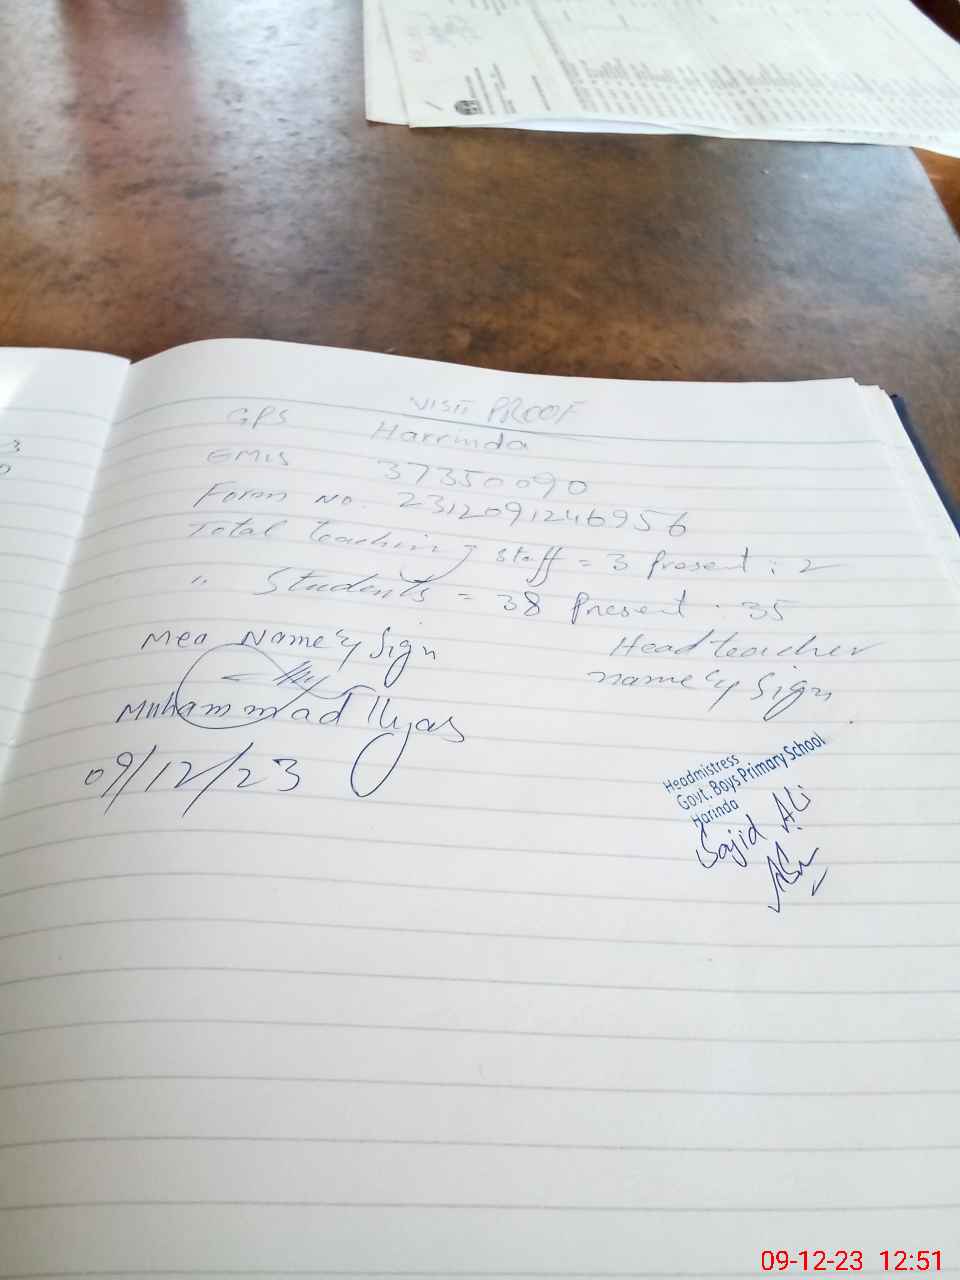 VISIT PROOF
GPS Harrinda
EMIS 37350090
Form no. 2312091246956
Total teaching staff = 3 Present : 2
" Students = 38 Present : 35
Mea Name & Sign
Headteacher
name & Sign
Muhammad Ilyas
09/12/23
Headmistress
Govt. Boys Primary School
Harinda
Sajid Ali
09-12-23 12:51